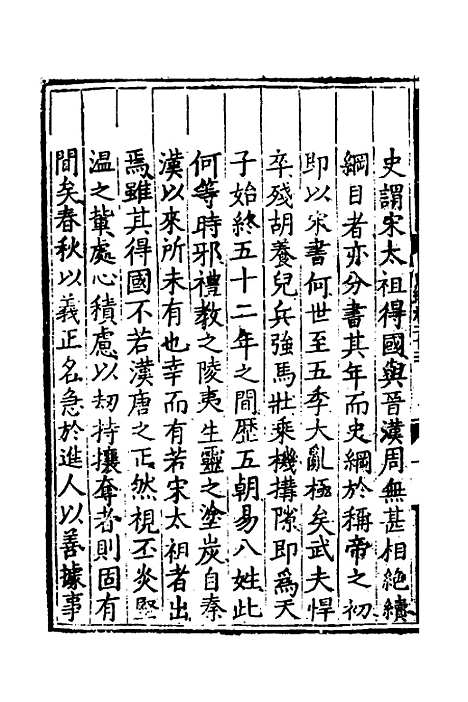 史謂宋太祖得國與晉漢周無甚相絶續
綱目者亦分書其年而史綱於稱帝之初
即以宋書何世至五季大亂極矣武夫悍
卒殘胡養兒兵強馬壯乘機搆隙即爲天
子始終五十二年之間歷五朝易八姓此
何等時邪禮教之陵夷生靈之塗炭自秦
漢以來所未有也幸而有若宋太祖者出
焉雖其得國不若漢唐之正然視丕炎堅
温之軰處心積慮以刼持攘奪者則固有
間矣春秋以義正名急於進人以善據事